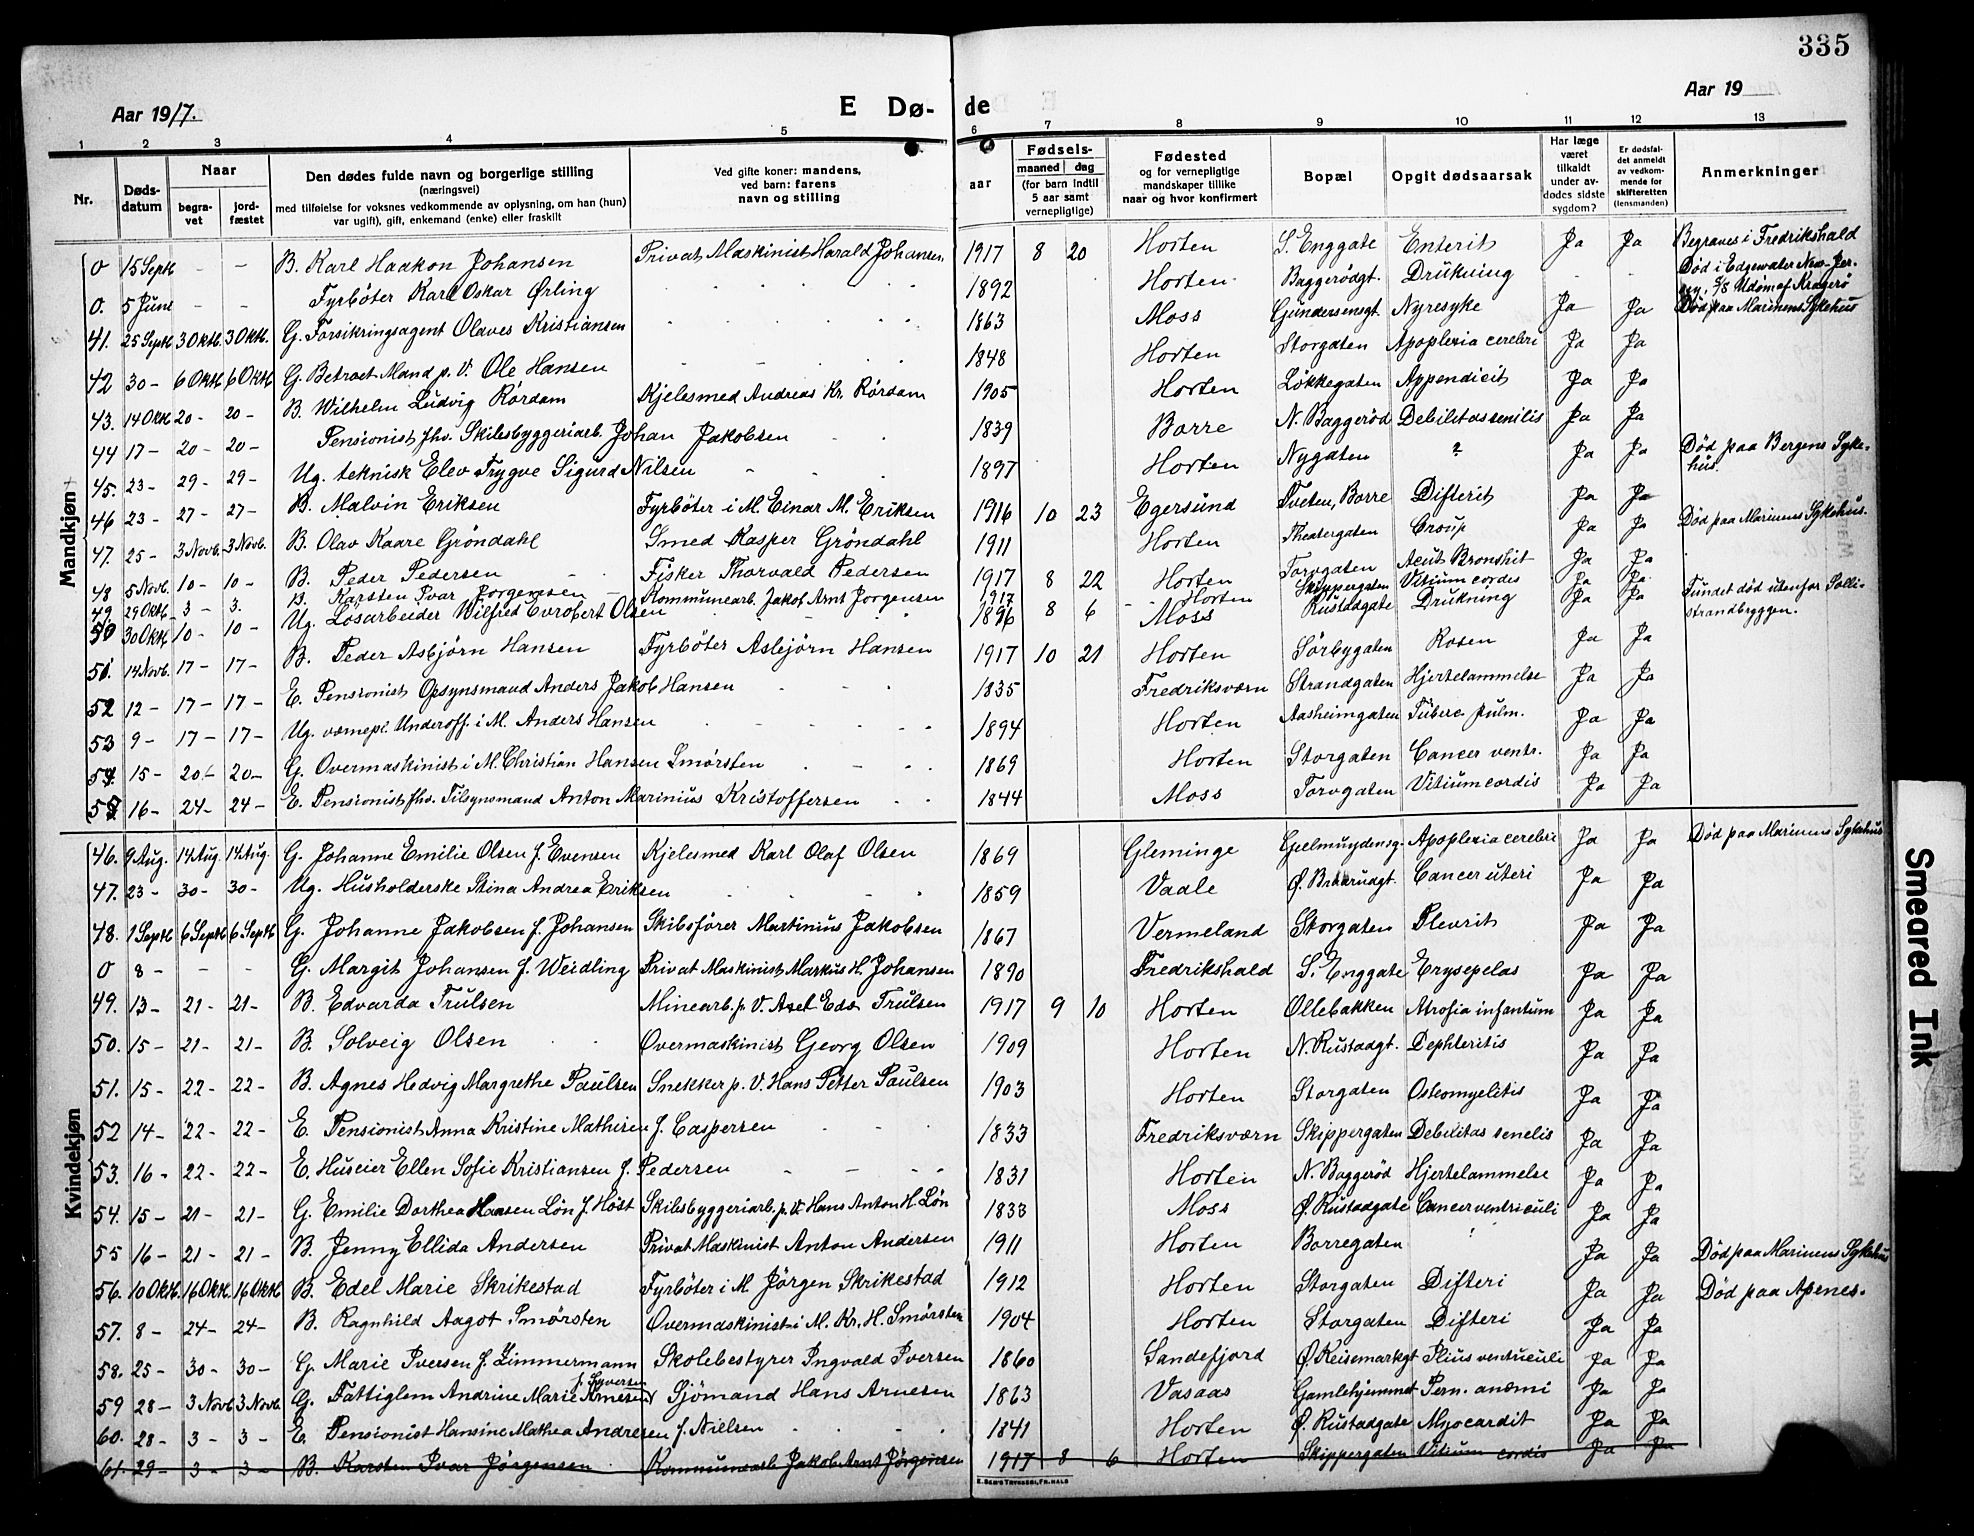 335
Aar 1917.
E Dø-
de
Aar 19
1 2 3 4 5 6 7 8 9 10 11 12 13
Nr.
Døds-datum
Naar
begra-vet
jord-fæstet
Den dødes fulde navn og borgerlige stilling
(næringsvei)
med tilføielse for voksnes vedkommende av oplysning, om han (hun)
var ugift), gift, enkemand (enke) eller fraskilt
Ved gifte koner: mandens,
ved barn: farens
navn og stilling
aar
Fødsels-
maaned dag
(for barn indtil
5 aar samt
vernepligtige)
Fødested
og for vernepligtige
mandskaper tillike
naar og hvor konfirmert
Bopæl
Opgit dødsaarsak
Har læge
været
tilkaldt
under av-
dødes sidste
sygdom?
Er dødsfal-
det anmeldt
av vedkom-
mende for
skifteretten
(lensmanden)
Anmerkninger
Mandkjøn
0 15 Septb - - B. Karl Haakon Johansen Privat Maskinist Harald Johansen 1917 8 20 Horten S. Enggate Enterit Ja Ja Begraves i Fredrikshald
0. 5 Juni - - Fyrbøter Karl Oskar Ørling 1892 Horten Baggerødgt. Drukning - - Død i Edgewater New-Jersey, 5/8 Udsm af Kragerø
41. 25 Septb 3 Oktb. 3 Oktb. G. Forsikringsagent Olaves Kristiansen 1863 Moss Gundersensgt. Nyresyke Ja Ja Død paa Marinens Sykehus
42 30 - 6 Oktb 6 Oktb G. Betroet Mand p. V. Ole Hansen 1848 Horten Storgaten Apoplexia cerebri Ja Ja
43. 14 Oktb 20 - 20 - B. Wilhelm Ludvig Rørdam Kjelesmed Andreas Kr. Rørdam 1905 Horten Løkkegaten Appendicit Ja Ja
44 17 - 20 - 20 - Pensionist fhv. Skibsbyggeriarb. Johan Jakobsen 1839 Borre N. Baggerød Debilitas senilis Ja Ja
45. 23 - 29 - 29 - Ug. teknisk Elev Trygve Sigurd Nilsen 1897 Horten Nygaten ? Ja Ja Død paa Bergens Sykehus.
46 23 - 27 - 27 - B. Malvin Eriksen Fyrbøter i M. Einar M. Eriksen 1916 10 23 Egersund Tveten, Borre Difterit Ja Ja
47. 25 - 3 Novb. 3 Novb. B. Olav Kaare Gröndahl Smed Kasper Gröndahl 1911 Horten Theatergaten Croup Ja Ja Død paa Marinens Sykehus.
48 5 Novb. 10 - 10 - B. Peder Pedersen Fisker Thorvald Pedersen 1917 8 22 Horten Torvgaten Acut Bronshit Ja Ja
49. 29 Oktb. 3 - 3. B. Karsten Ivar Jørgensen Kommunearb. Jakob Arnt Jørgensen 1917 8 6 Horten Skippergaten Vitium cordis Ja Ja
50 30 Oktb 10 - 10 - Ug. Løsarbeider Wilfred Evrobert Olsen 1896 Moss Rustadgate Drukning Ja Ja Fundet død utenfor Sollistrandbryggen.
51. 14 Novb. 17 - 17 - B. Peder Asbjørn Hansen Fyrbøter Asbjørn Hansen 1917 10 21 Horten Sørbygaten Rosen Ja Ja
52 12 - 17 - 17 - E. Pensionist Opsynsmand Anders Jakob Hansen 1835 Fredriksværn Strandgaten Hjertelammelse Ja Ja
53 9 - 17 - 17 - Ug. værnepl. Underoff. i M. Anders Hansen 1894 Horten Aasheimgaten Tuberc. pulm. Ja Ja
54. 15 - 20 - 20 - G. Overmaskinist i M. Christian Hansen Smørsten 1869 Horten Storgaten Cancer ventr. Ja Ja
55 16 - 24 - 24 - E. Pensionist fhv. Tilsynsmand Anton Marinius Kristoffersen 1844 Moss Torvgaten Vitium cordis Ja Ja
Kvindekjøn
46. 9 Aug. 14 Aug. 14 Aug. G. Johanne Emilie Olsen f. Evensen Kjelesmed Karl Olaf Olsen 1869 Gleminge Gjelmuydensg. Apoplexia cerebri Ja Ja Død paa Marinens Sykehus
47. 23 - 30 - 30 - Ug. Husholderske Stina Andrea Eriksen 1859 Vaale Cancer uteri Ja Ja
48. 1 Septb 6 Septb 6 Septb G. Johanne Jakobsen f. Johansen Skibsfører Martinius Jakobsen 1867 Vermeland Storgaten Plevrit Ja Ja
0 8 - - - G. Margit Johansen f. Weidling Privat Maskinist Markus H. Johansen 1890 Fredrikshald S. Enggate Erysepelas Ja Ja
49. 13 - 21 - 21 - B. Edvarda Trulsen Minearb. p. V. Axel Edv. Trulsen 1917 9 10 Horten Ollebakken Atrofia infantum Ja Ja
50. 15 - 21 - 21 - B. Solveig Olsen Overmaskinist Georg Olsen 1909 Horten N. Rustadgt. Dephteritis Ja Ja
51. 15 - 22 - 22 - B. Agnes Hedvig Margrethe Paulsen Snekker p. V. Hans Petter Paulsen 1903 Horten Storgaten Osteomyelitis Ja Ja
52 14 - 22 - 22 - E. Pensionist Anna Kristine Mathisen f. Caspersen 1833 Fredriksværn Skippergaten Debilitas senelis Ja Ja
53. 16 - 22 - 22 - E. Huseier Ellen Sofie Kristiansen f. Pedersen 1831 Horten N. Baggerød Hjertelammelse Ja Ja
54. 15 - 21 - 21 - G. Emilie Dorthea Hansen Løn f. Høst Skibsbyggeriarb. p. V. Hans Anton H. Løn 1833 Moss Ø. Rustadgate Cancer ventriculi Ja Ja
55 16 - 21 - 21 - B. Jenny Ellida Andersen Privat Maskinist Anton Andersen 1911 Horten Borregaten Ja Ja Død paa Marinens Sykehus
56. 10 Oktb. 16 Oktb. 16 Oktb B. Edel Marie Skrikestad Fyrbøter i M. Jörgen Skrikestad 1912 Horten Storgaten Difteri Ja Ja Død paa Apenes.
57. 8 - 24 - 24 - B. Ragnhild Aagot Smørsten Overmaskinist i M. Kr. H. Smørsten 1904 Horten Storgaten Difteri Ja Ja
58. 25 - 30 - 30 - G. Marie Iversen f. Zimmermann Skolebestyrer Ingvald Iversen 1860 Sandefjord Ø. Keisemarkgt Ja Ja
59 28 - 3 Novb 3 Novb. G. Fattiglem Andrine Marie Arnesen f. Syversen Sjömand Hans Arnesen 1863 Vasaas Gamlehjemmet Pern. anæmi Ja Ja
60. 28 - 3 - 3 - E. Pensionist Hansine Mathea Andresen f. Nielsen 1841 Horten Ø. Rustadgate Myocardit Ja Ja
61. 29 - 3 - 3 - B. Karsten Ivar Jørgensen Kommunearb. Jakob Arnt Jørgensen 1917 8 6 Horten Skippergaten Vitium cordis Ja Ja
Smeared Ink